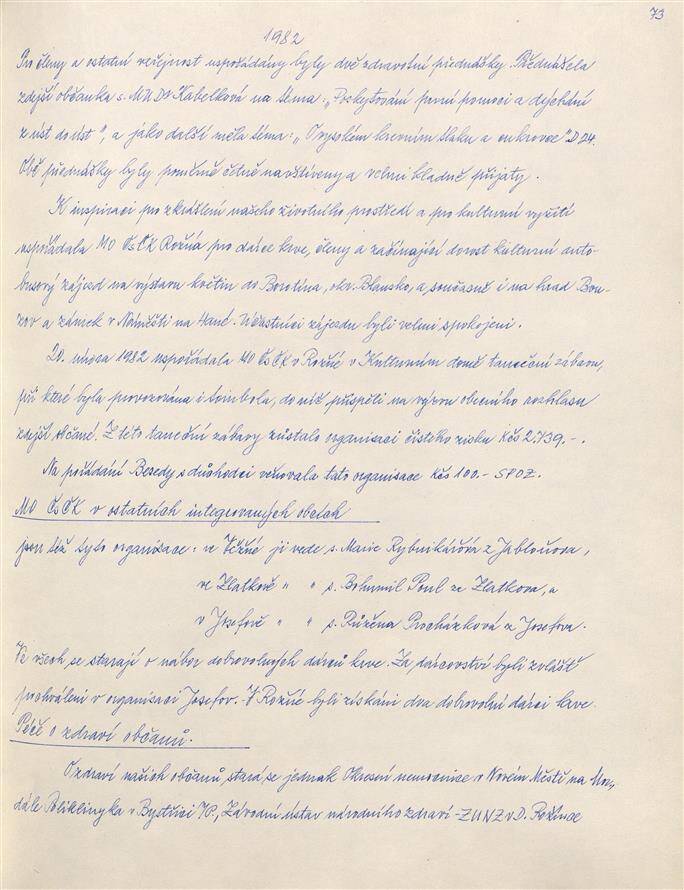 73
1982
Pro členy a ostatní veřejnost uspořádány byly dvě zdravotní přednášky. Přednášela
zdejší občanka s. MUDr Kabelková na téma: „Poskytování první pomoci a dýchání
z úst do úst", a jako další měla téma: „O vysokém krevním tlaku a cukrovce"
Obě přednášky byly poměrně četně navštíveny a velmi kladně přijaty.
K inspiraci pro zkrášlení našeho životního prostředí a pro kulturní vyžití
uspořádala MO ČsČK Rožná pro dárce krve, členy a začínající dorost kulturní auto-
busový zájezd na výstavu květin do Borotína, okr. Blansko, a současně i na hrad Bou-
zov a zámek v Náměšti na Hané. Účastníci zájezdu byli velmi spokojeni.
20. února 1982 uspořádala MO ČsČK v Rožné v Kulturním domě taneční zábavu,
při které byla provozována i tombola, do níž přispěli na výzvu obecního rozhlasu
zdejší občané. Z této taneční zábavy zůstalo organisaci čistého zisku Kčs 2.739.-.
Na pořádání Besedy s důchodci věnovala tato organisace Kčs 100.- SPOZ.
MO ČsČK v ostatních integrovaných obcích
jsou též tyto organisace: ve Věžné ji vede s. Marie Rybnikářová z Jabloňova,
ve Zlatkově " " s. Bohumil Poul ze Zlatkova, a
v Josefově " " s. Růžena Procházková z Josefova.
Ve všech se starají o nábor dobrovolných dárců krve. Za dárcovství byli zvláště
pochváleni v organisaci Josefov. - V Rožné byli získáni dva dobrovolní dárci krve.
Péče o zdraví občanů.
O zdraví našich občanů stará se jednak Okresní nemocnice v Novém Městě na Mor.,
dále Poliklinyka v Bystřici n/P., Závodní ústav národního zdraví - ZUNZ v D. Rožínce